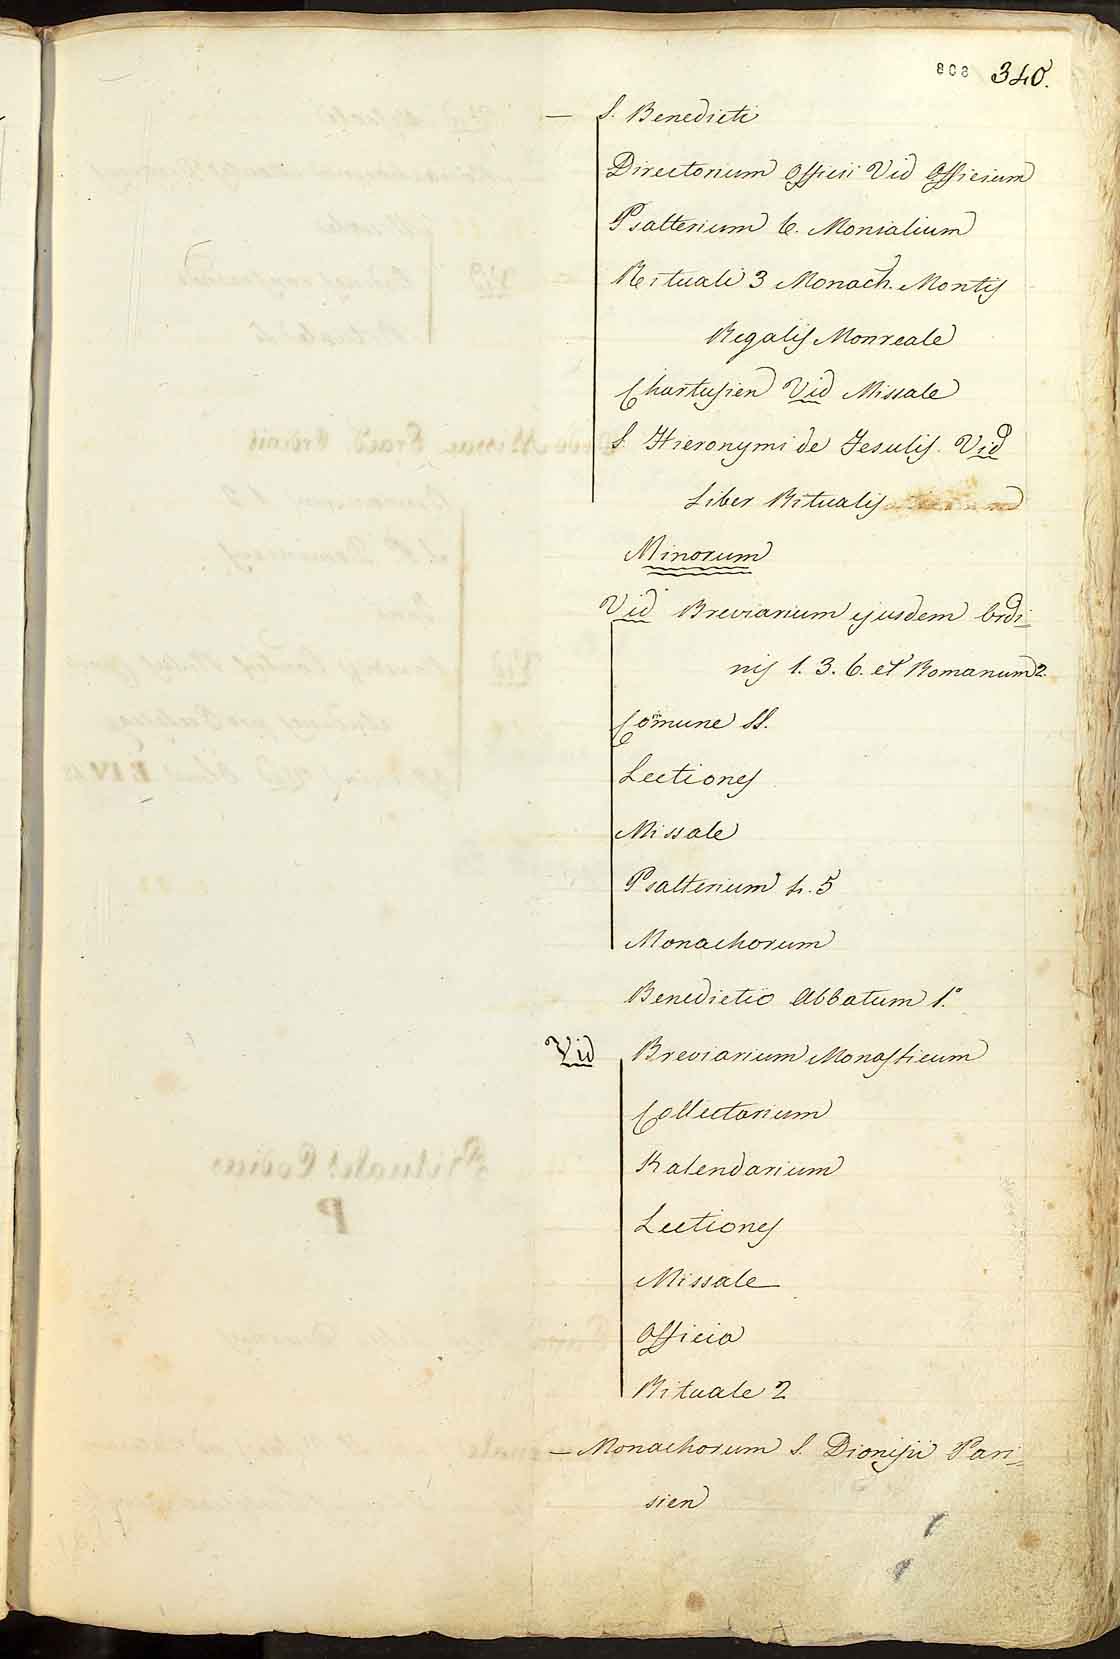 808 340.
— S. Benedicti
Directorium Officii Vid Officium
Psalterium 6. Monialium
Rituali 3 Monach. Montis
Regalis Monreale
Chartusien Vid Missale
S. Hieronymi de Fesulis. Vid
Liber Ritualis
Minorum
Vid Breviarium ejusdem Ordi=
nis 1. 3. 6. et Romanum 2.
Comune SS.
Lectiones
Missale
Psalterium 4. 5
Monachorum
Benedictio Abbatum 1.°
Vid Breviarium Monasticum
Collectarium
Kalendarium
Lectiones
Missale
Officia
Rituale 2
— Monachorum S. Dionisii Pari=
sien